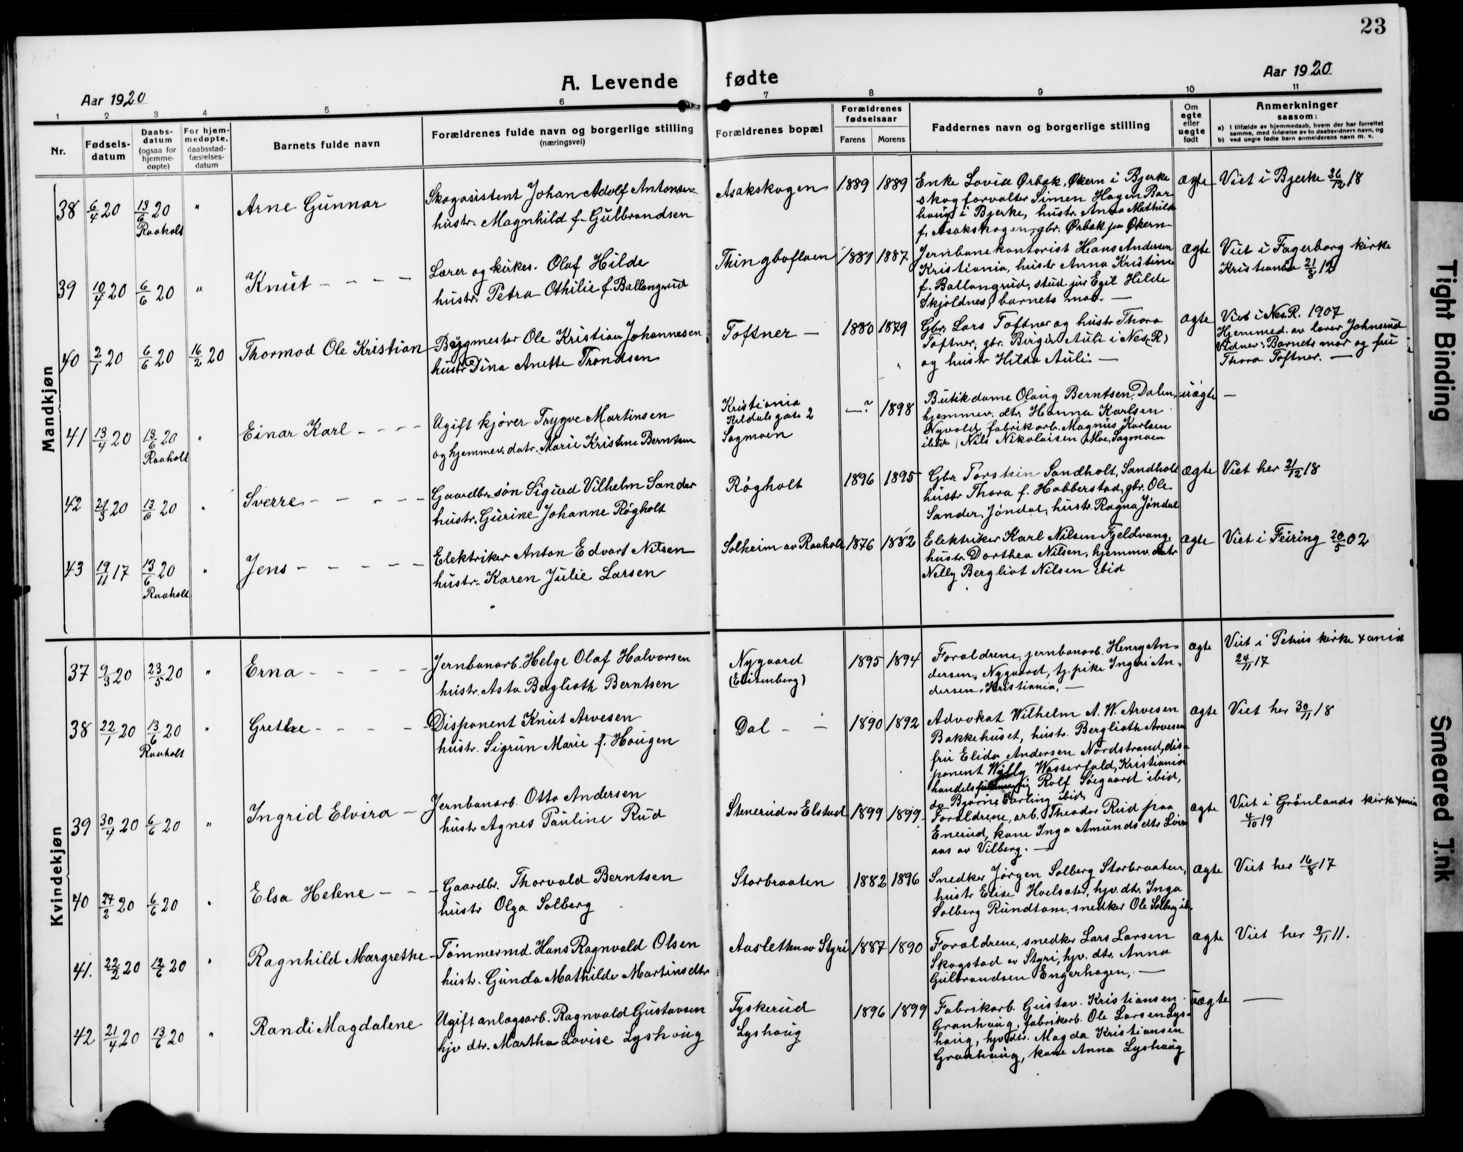 23
A. Levende fødte
Aar 1920
Aar 1920
1 2 3 4 5 6 7 8 9 10 11
Nr.
Fødsels-
datum
Daabs-
datum
(ogsaa for
hjemme-
døpte)
For hjem-
medøpte,
daabsstad-
fæstelses-
datum
Barnets fulde navn
Forældrenes fulde navn og borgerlige stilling
(næringsvei)
Forældrenes bopæl
Forældrenes
fødselsaar
Farens Morens
Faddernes navn og borgerlig stilling
Om
ægte
eller
uægte
født
Anmerkninger
saasom:
a) I tilfælde av hjemmedaab, hvem der har forrettet
samme, med tilføielse av to daabsvidners navn, og
b) ved uegte fødte barn anmelderens navn m. v.
Mandkjøn
38 6/4 20 13/6 20 "
Raaholt
Arne Gunnar
Skogassistent Johan Adolf Antonsen
hustr. Magnhild f. Gulbrandsen
Asakskogen 1889 1889
Enke Lovise Ørbæk, Økern i Bjerke
skogforvalter Simen Hagen
i Bjerke, hustr. Anna Mathilde
f. Asakskogen, gbr. Ørbæk paa Økern
ægte
Viet i Bjerke 26/12 18
39 10/4 20 6/6 20 "
Knut - - -
Lærer og kirkes. Olaf Hilde
hustr. Petra Othilie f. Ballangrud
Thingbøflaen 1889 1887
Jernbanekontorist Hans Andersen
Kristiania, hustr. Anna Kristine
f. Ballangrud, stud. jur Egil Hilde
Skjoldnes, barnets mor. -
ægte
Viet i Fagerborg kirke
Kristiania 21/5 19
40 2/1 20 6/6 20 16/2 20
Thormod Ole Kristian
Byggmester Ole Kristian Johannesen
hustr. Dina Anette Trondsen
Toftner - 1880 1879
Gbr. Lars Toftner og hustr. Thora
Toftner, gbr. Birger Auli i Nes, R)
og hustr. Hilda Auli. -
ægte
Viet i Nes R. 1907
Hjemmed. av lærer Johnsrud
Vidner: Barnets mor og fru
Thora Toftner. -
41 13/4 20 13/6 20 "
Raaholt
Einar Karl - - -
Ugift kjører Trygve Martinsen
og hjemmev. datr. Marie Kristine Berntsen
Kristiania
gate 2
Sagmoen
-? 1898
Butikdame Olaug Berntsen, Dalen,
hjemmev. dtr. Hanna Karlsen
Nyvold, fabrikarb. Magnus Karlsen
ibid, Nils Nikolaisen Moe, Sagmoen
uægte -
42 21/3 20 13/6 20 "
Sverre - - -
Gaardbr. søn Sigurd Vilhelm Sander
hustr. Gurine Johanne Røgholt
Røgholt 1896 1895
Gbr. Torstein Sandholt, Sandholt
hustr. Thora f. Habberstad, gbr. Ole
Sander, Jøndal, hustr. Ragna Jøndal
ægte
Viet her 21/12 18
43 19/11 17 13/6 20 "
Raaholt
Jens - - - -
Elektriker Anton Edvart Nilsen
hustr. Karen Julie Larsen
Solheim av Raaholt 1876 1882
Elektriker Karl Nilsen Fjeldvang
hustr. Dorthea Nilsen, hjemmv. datr.
Nelly Bergliot Nilsen ibid
ægte
Viet i Feiring 20/5 02
Kvindekjøn
37 9/3 20 23/5 20 "
Erna - - - -
Jernbanarb. Helge Olaf Halvorsen
hustr. Asta Berglioth Berntsen
Nygaard
(Eidsenberg)
1895 1894
Forældrene, jernbanarb. Henry An-
dersen, Nygaard, tj.pike Ingrid An-
dersen, Kristiania. -
ægte
Viet i Petrus kirke Xania
24/11 17
38 22/1 20 13/6 20 "
Raaholt
Grethe - - - -
Disponent Knut Arvesen
hustr. Sigrun Marie f. Haugen
Dal - - 1890 1892
Advokat Wilhelm A. W. Arvesen
Bakkehuset, hustr. Berglioth Arvesen
fru Elida Andersen Nordstrand, dis-
ponent Willy Wasserfald, Kristiania
Rolf Søegaard ibid,
og Bjørne ibid
ægte
Viet her 30/11 18
39 30/4 20 6/6 20 "
Ingrid Elvira -
Jernbanarb. Otto Andersen
hustr. Agnes Pauline Rud
Stenerud av Elstad 1899 1899
Forældrene, arb. Theodor Rud paa
Enerud, kone Inga Amundsdtr.
aas av Vilberg. -
ægte
Viet i Grønlands kirke Xania
4/10 19
40 27/2 20 6/6 20 "
Elsa Helene - - -
Gaardbr. Thorvald Berntsen
hustr. Olga Solberg
Storbraaten 1882 1896
Snedker Jørgen Solberg Storbraaten,
hustr. Elise Hoelsæter, hjv. dtr. Inga
Solberg Rundtom, snedker Ole Solberg ib.
ægte
Viet her 16/8 17
41. 22/2 20 13/6 20 "
Ragnhild Margrethe -
Tømmermd. Hans Ragnvald Olsen
hustr. Gunda Mathilde Martinsdtr.
Aasletten av Styri 1887 1890
Forældrene, snedker Lars Larsen
Skogstad av Styri, hjv. dtr. Anna
Gulbrandsen Engerhagen, -
ægte
Viet her 3/11 11.
42 21/4 20 13/6 20 "
Randi Magdalene
Ugift anlægsarb. Ragnvald Gustavsen
hjv dtr. Martha Lovise Lyshaug
Tyskerud
Lyshaug
1896 1899
Fabrikarb. Gustav Kristiansen
Granhaug, fabrikarb. Ole Larsen Lys-
haug, hjv. dtr. Magda Kristiansen
Granhaug, kone Anna Lyshaug
uægte -
Tight Binding
Smeared Ink